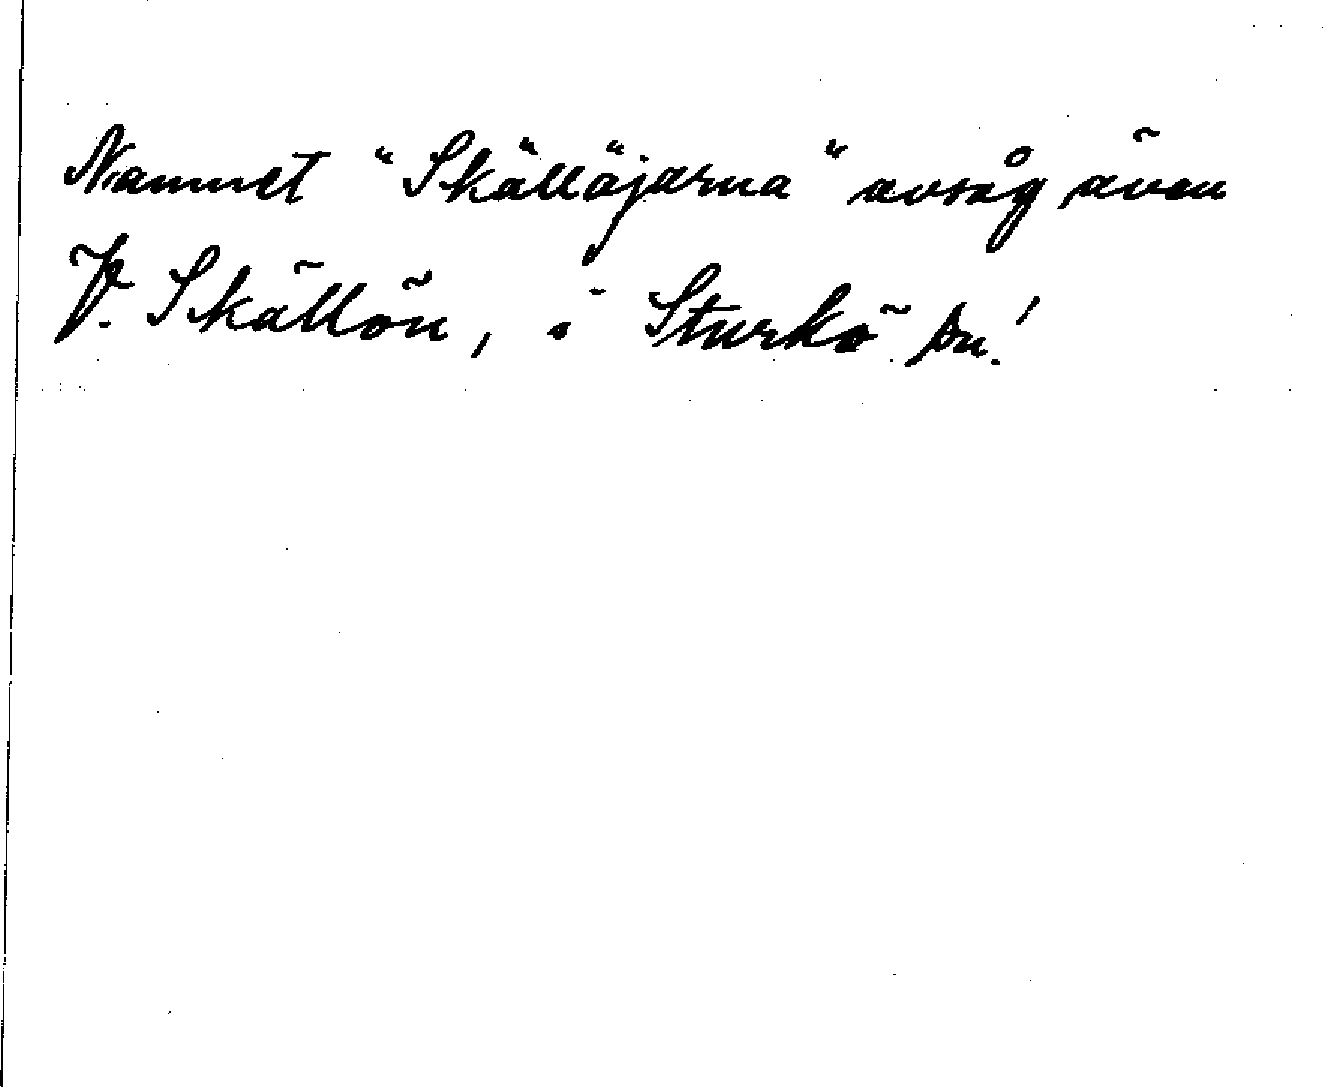 Namnet "Skälläjarna" avsåg även
V. Skällön, i Sturkö sn!